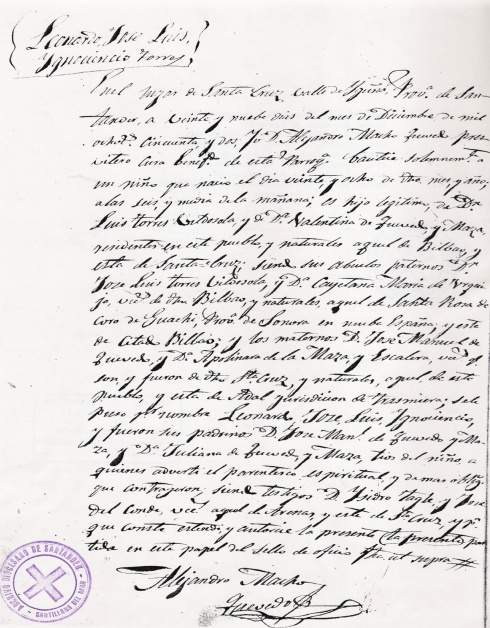 Leonardo, Jose Luis,
Ygnocencio Torres
En el lugar de Santa Cruz valle de Yguña Provª. de San-
tander, a veinte y nuebe dias del mes de Diciembre de mil
ochotˢ. cincuenta y dos, Yo D. Alejandro Macho Quevedo pres-
vitero Cura Benefᵈᵒ de esta Parroqª. bautice solemnemtᵉ a
un niño que nacio el dia veinte y ocho de dho. mes, y año,
a las seis y media de la mañana; es hijo legitimo, de Dⁿ.
Luis Torres Vildosola, y de Dª Valentina de Quevedo y Maza,
residentes en este pueblo, y naturales aquel de Bilbao, y
esta de Santa Cruz; siendo sus abuelos paternos Dⁿ.
Jose Luis Torres Vildosola, y Dª Cayetana Maria de Urqui-
jo, vecˢ. de dha. Bilbao, y naturales, aquel de Santa Rosa de
Coro de Guachi, Provª. de Sonora en nueba España, y esta
de citada Bilbao; y los maternos D. Jose Manuel de
Quevedo, y Dª Apolinara de la Maza, y Escalera, vecˢ. q.
son, y fueron de dho. Stª Cruz, y naturales, aquel de este
pueblo, y esta de Adal jurisdicion de Trasmiera; se le
puso pʳ. nombre Leonardo, Jose, Luis, Ygnocencio,
y fueron sus padrinos D. Jose Manˡ. de Quevedo y Ma-
za, y Dª Juliana de Quevedo y Maza, tios del niño, a
quienes adverti el parentesco espiritual, y demas oblig.
que contrageron, siendo testigos D. Ysidro Tagle, y Jose
del Conde, vecˢ. aquel de Arenas, y este de Stª Cruz, y pª.
que conste estendi, y autorice la presente (la presente par-
tida en este papel del sello de oficio fha ut supra
Alejandro Macho
Quevedo
ARCHIVO DIOCESANO DE SANTANDER
SANTILLANA DEL MAR